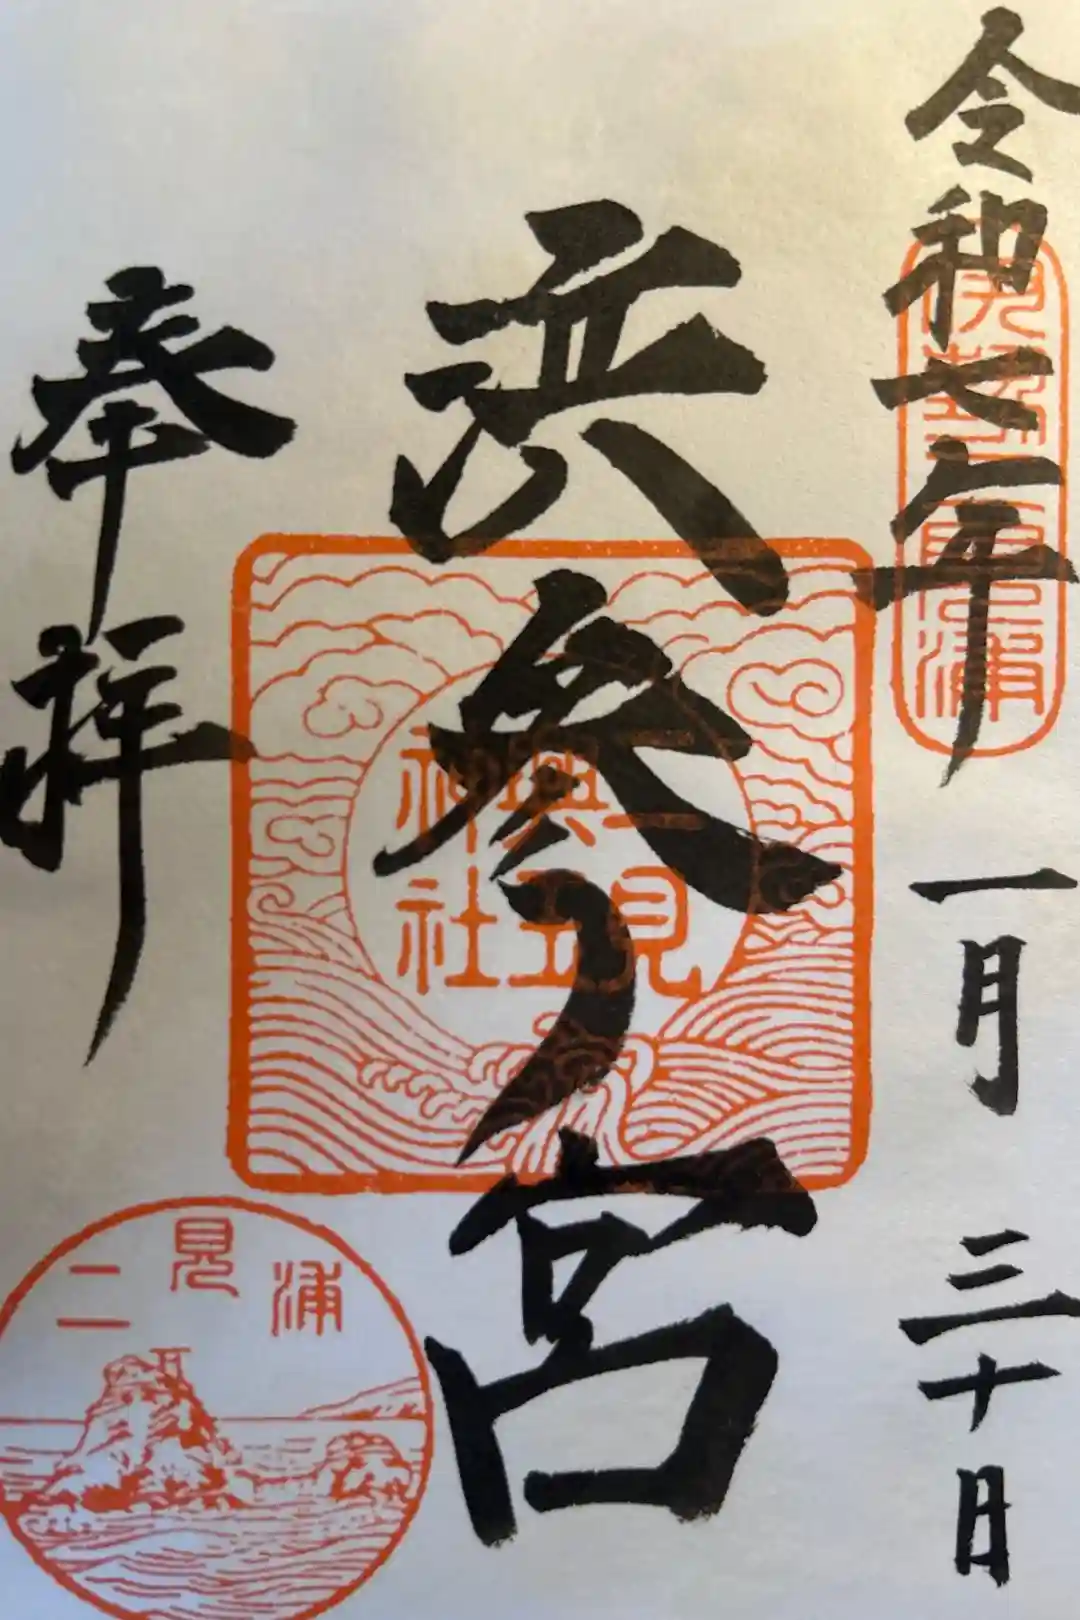 令和七年 一月 三十日
伊勢二見浦
浜参宮
二見興玉神社
奉拝
二見浦